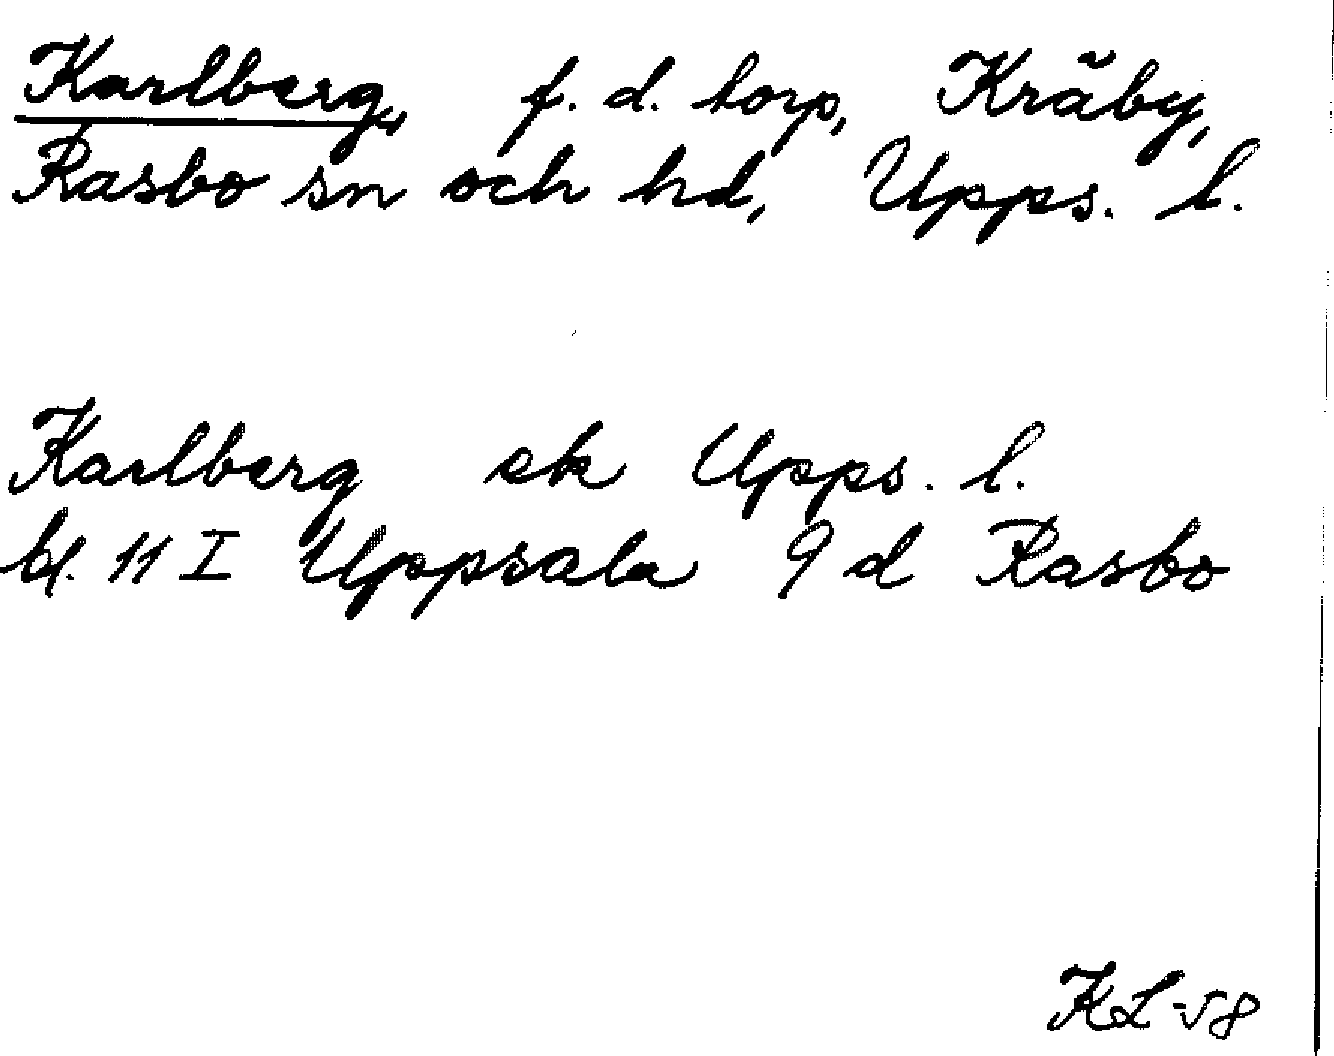 Karlberg, f. d. torp, Kräby,
Rasbo sn och hd, Upps. l.
Karlberg ek Upps. l.
bl. 11 I Uppsala 9 d Rasbo
KL-58